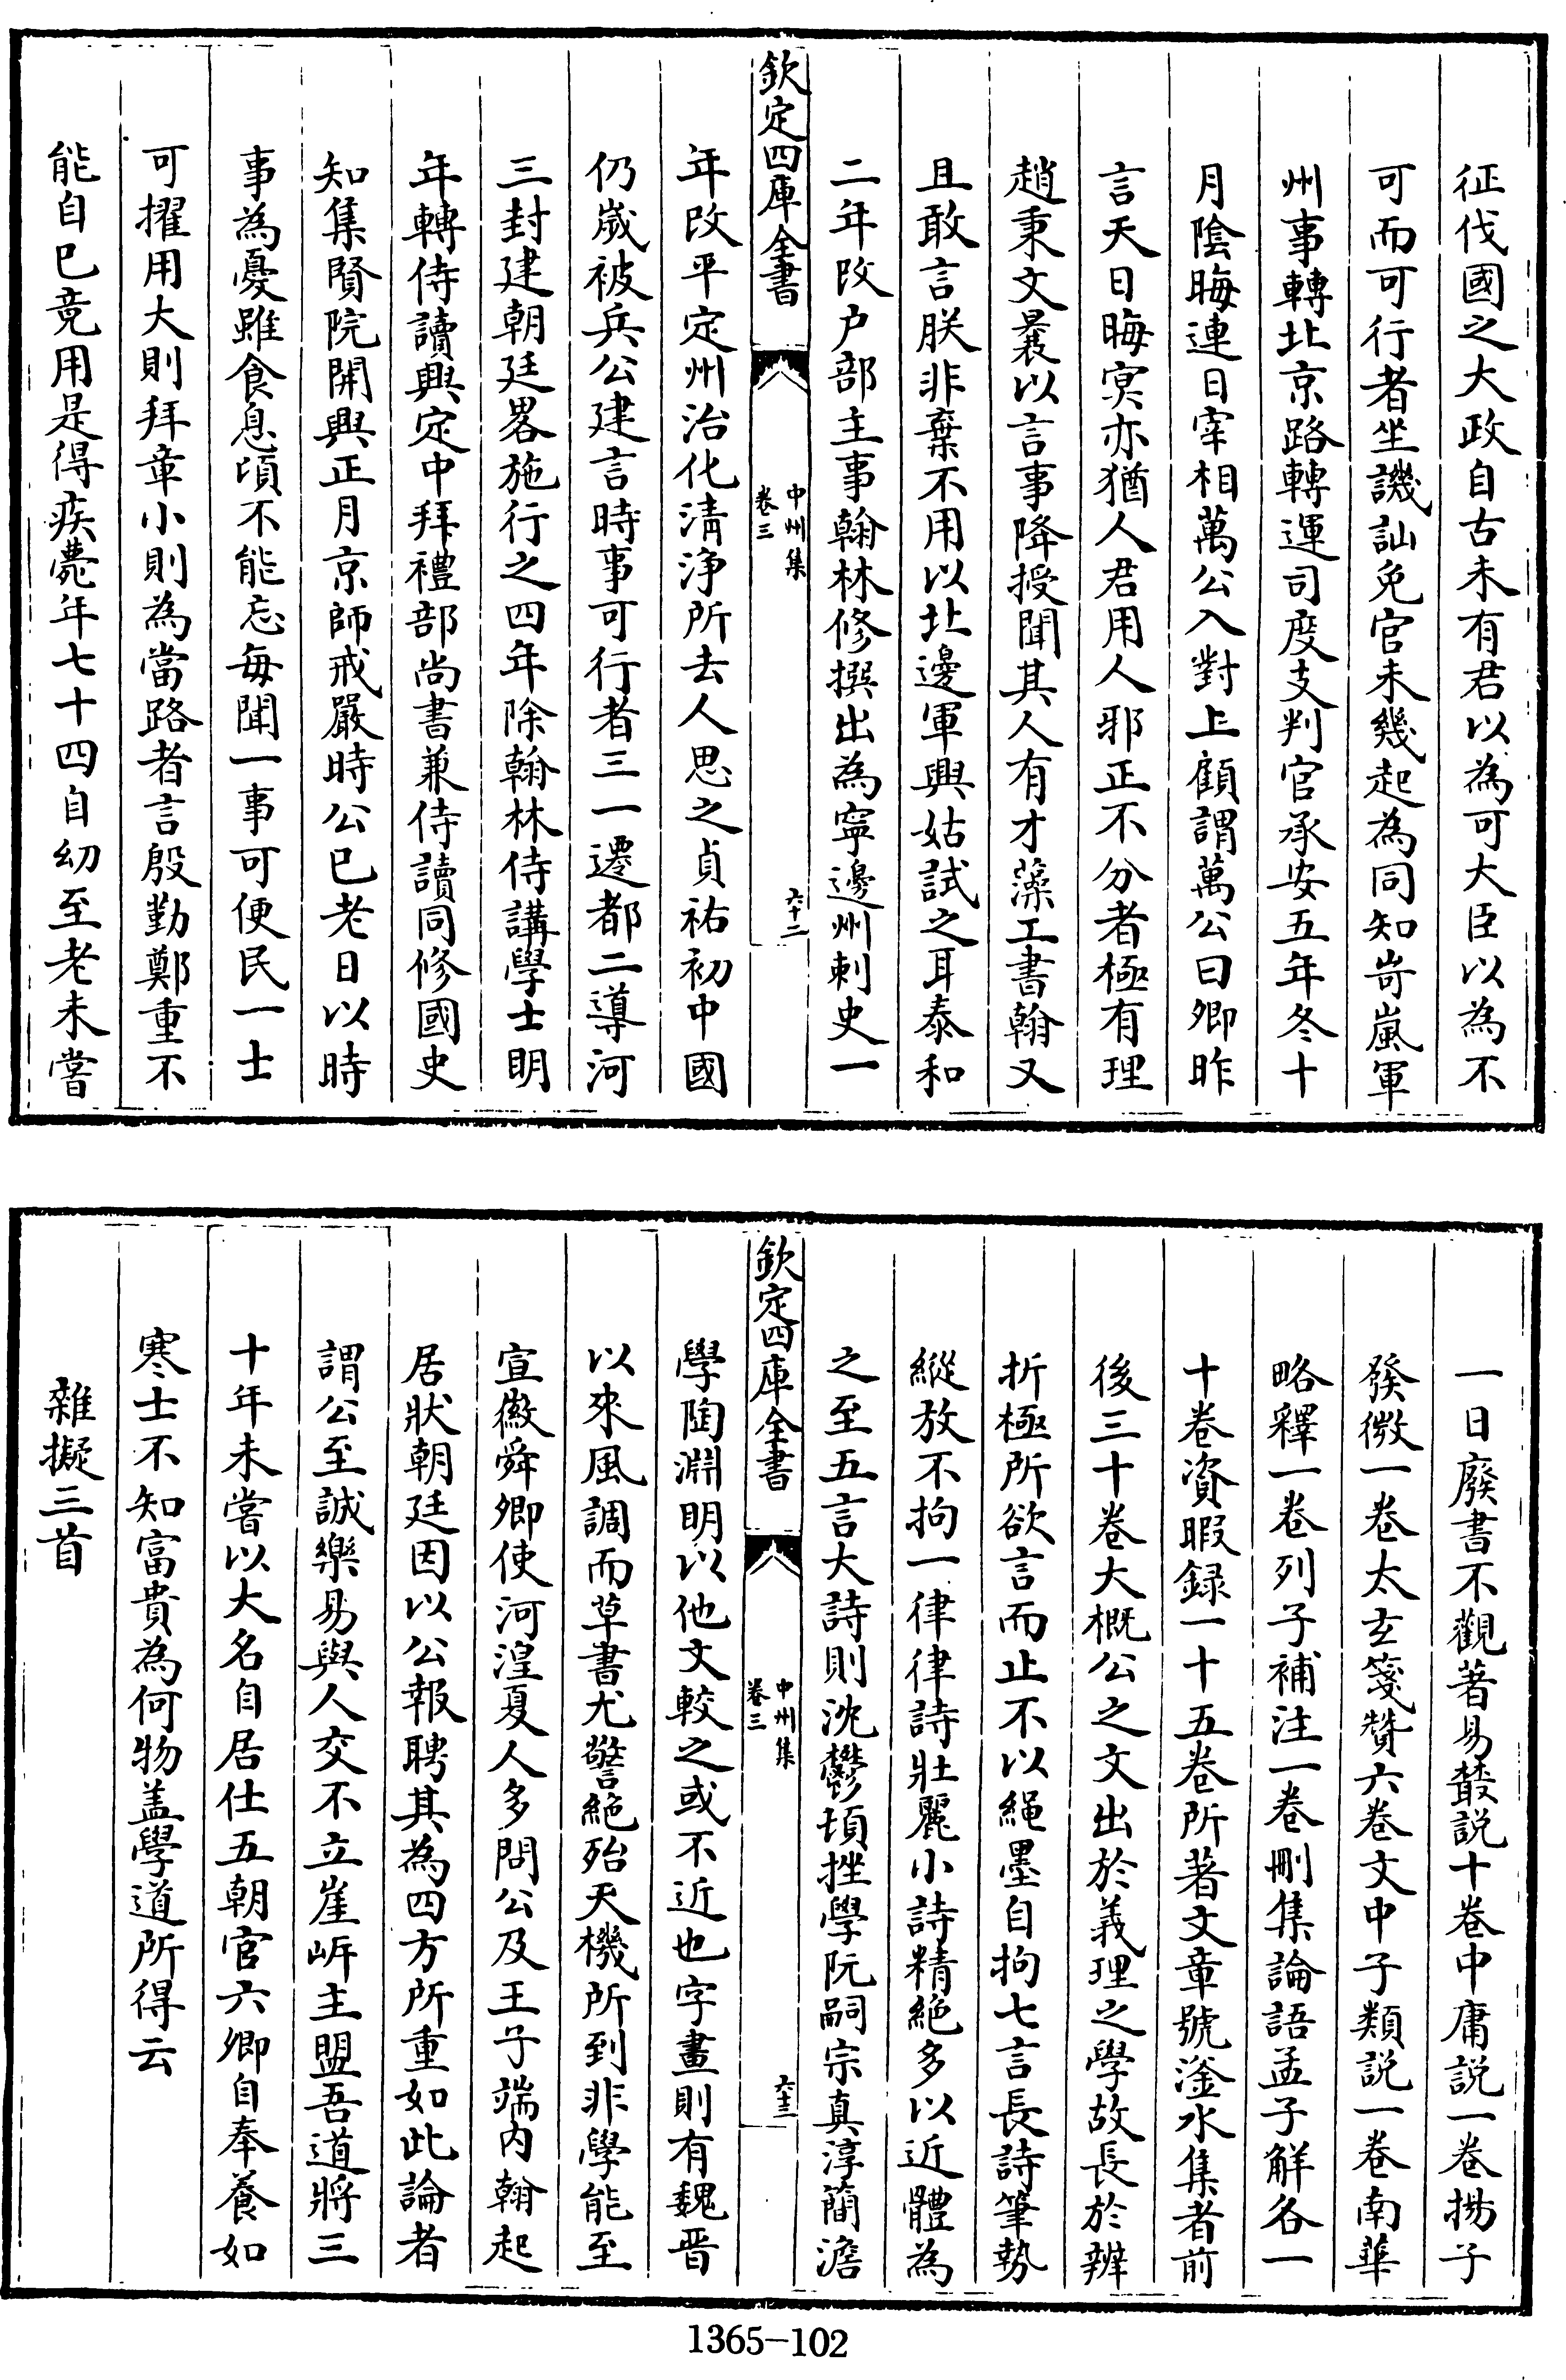 征伐國之大政自古未有君以為可大臣以為不
可而可行者坐譏訕免官未幾起為同知岢嵐軍
州事轉北京路轉運司度支判官承安五年冬十
月陰晦連日宰相萬公入對上顧謂萬公曰卿昨
言天日晦㝠亦猶人君用人邪正不分者極有理
趙秉文曩以言事降授聞其人有才藻工書翰又
且敢言朕非棄不用以北邊軍興姑試之耳泰和
二年改户部主事翰林修撰出為寧邊州刺史一
欽定四庫全書
中州集
卷三
六十二
年改平定州治化清淨所去人思之貞祐初中國
仍嵗被兵公建言時事可行者三一遷都二導河
三封建朝廷畧施行之四年除翰林侍講學士明
年轉侍讀興定中拜禮部尚書兼侍讀同修國史
知集賢院開興正月京師戒嚴時公已老日以時
事為憂雖食息頃不能忘每聞一事可便民一士
可擢用大則拜章小則為當路者言殷勤鄭重不
能自已竟用是得疾薨年七十四自幼至老未嘗
一日廢書不觀著易叢説十卷中庸説一卷揚子
發微一卷太玄箋贊六卷文中子類説一卷南華
略釋一卷列子補注一卷刪集論語孟子解各一
十卷資暇録一十五卷所著文章號滏水集者前
後三十卷大概公之文出於義理之學故長於辨
折極所欲言而止不以繩墨自拘七言長詩筆勢
縱放不拘一律律詩壯麗小詩精絶多以近體為
之至五言大詩則沈鬱頓挫學阮嗣宗真淳簡澹
欽定四庫全書
中州集
卷三
六十三
學陶淵明以他文較之或不近也字畫則有魏晋
以來風調而草書尤警絶殆天機所到非學能至
宣徽舜卿使河湟夏人多問公及王子端内翰起
居狀朝廷因以公報聘其為四方所重如此論者
謂公至誠樂易與人交不立崖岸主盟吾道將三
十年未嘗以大名自居仕五朝官六卿自奉養如
寒士不知富貴為何物盖學道所得云
雜擬三首
1365-102